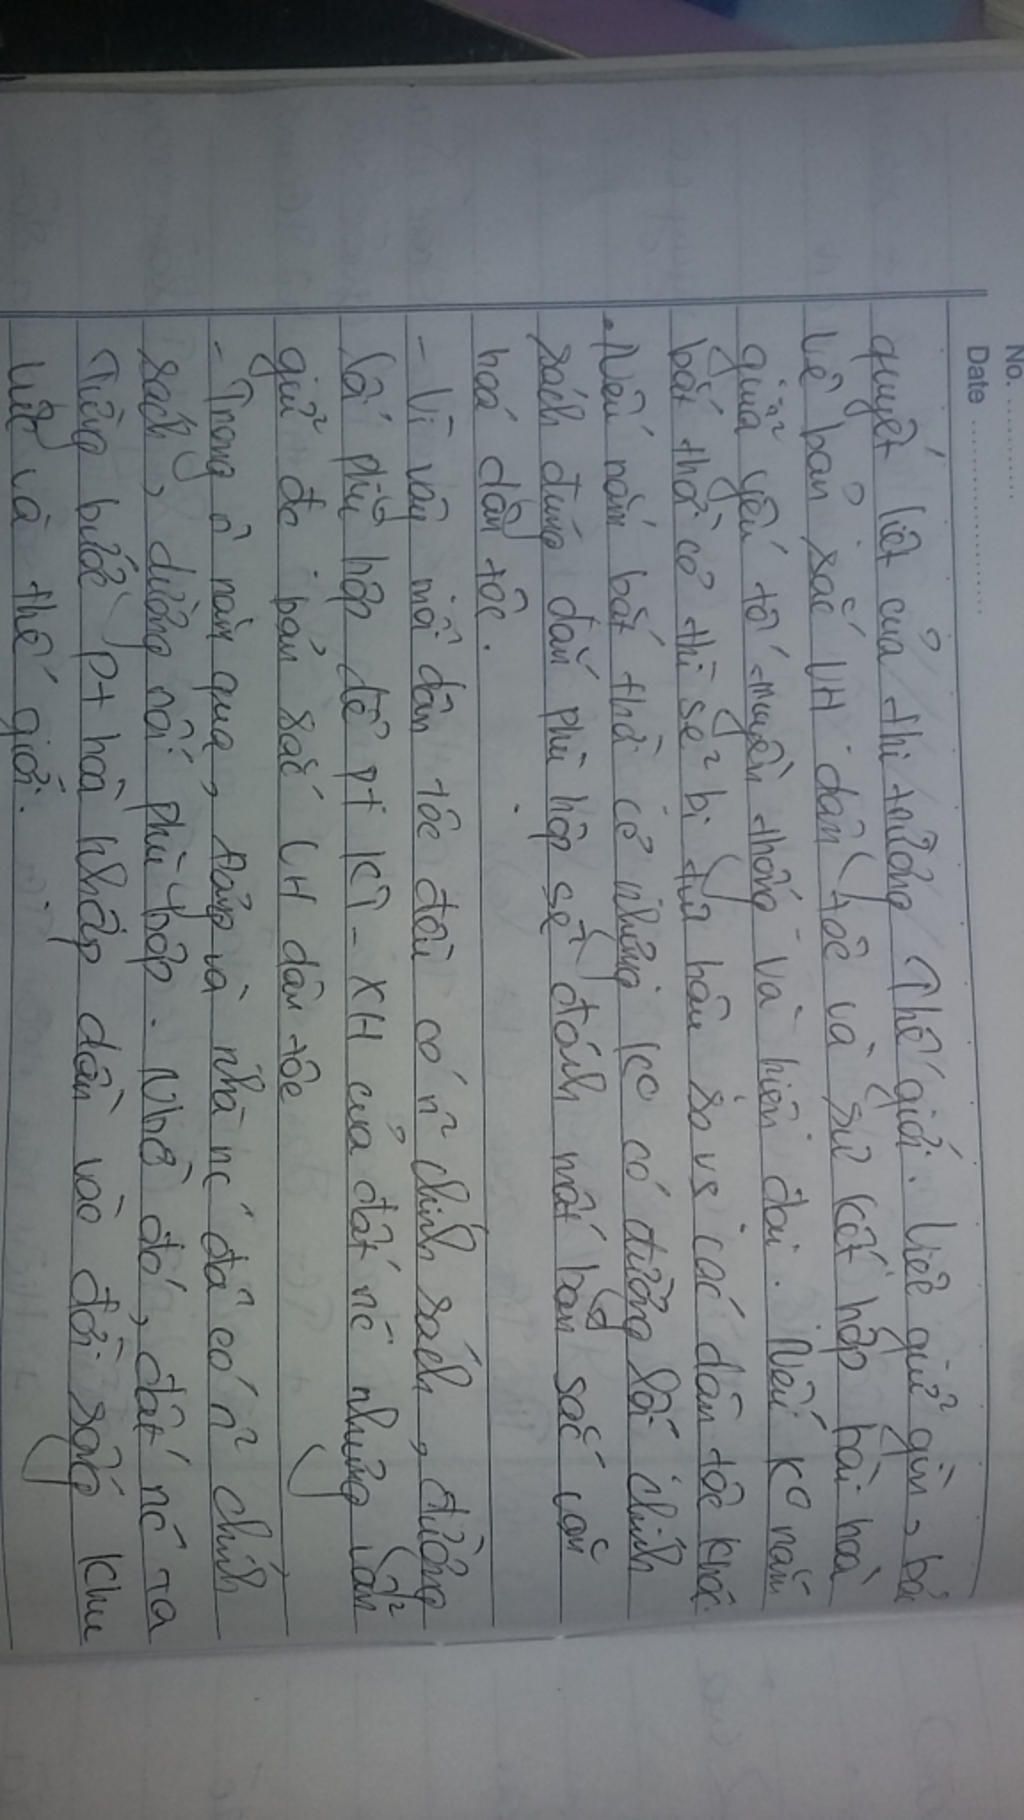 No. ............
Date ......................
quyết liệt của thị trường Thế giới. Việc giữ gìn, bảo
vệ bản sắc VH dân tộc và sự kết hợp hài hoà
giữa yếu tố truyền thống và hiện đại. Nếu ko nắm
bắt thời cơ thì sẽ bị tụt hậu so vs các dân tộc khác.
Nếu nắm bắt thời cơ nhưng ko có đường lối chính
sách đúng đắn phù hợp sẽ đánh mất bản sắc văn
hoá dân tộc.
- Vì vậy mỗi dân tộc đều có n~ chính sách, đường
lối phù hợp để pt KT - XH của đất nc nhưng vẫn
giữ đc bản sắc VH dân tộc
- Trong n~ năm qua, Đảng và nhà nc đã có n~ chính
sách, đường nối phù hợp. Nhờ đó, đất nc ta
từng bước pt hoà nhập dần vào đời sống khu
vực và thế giới.